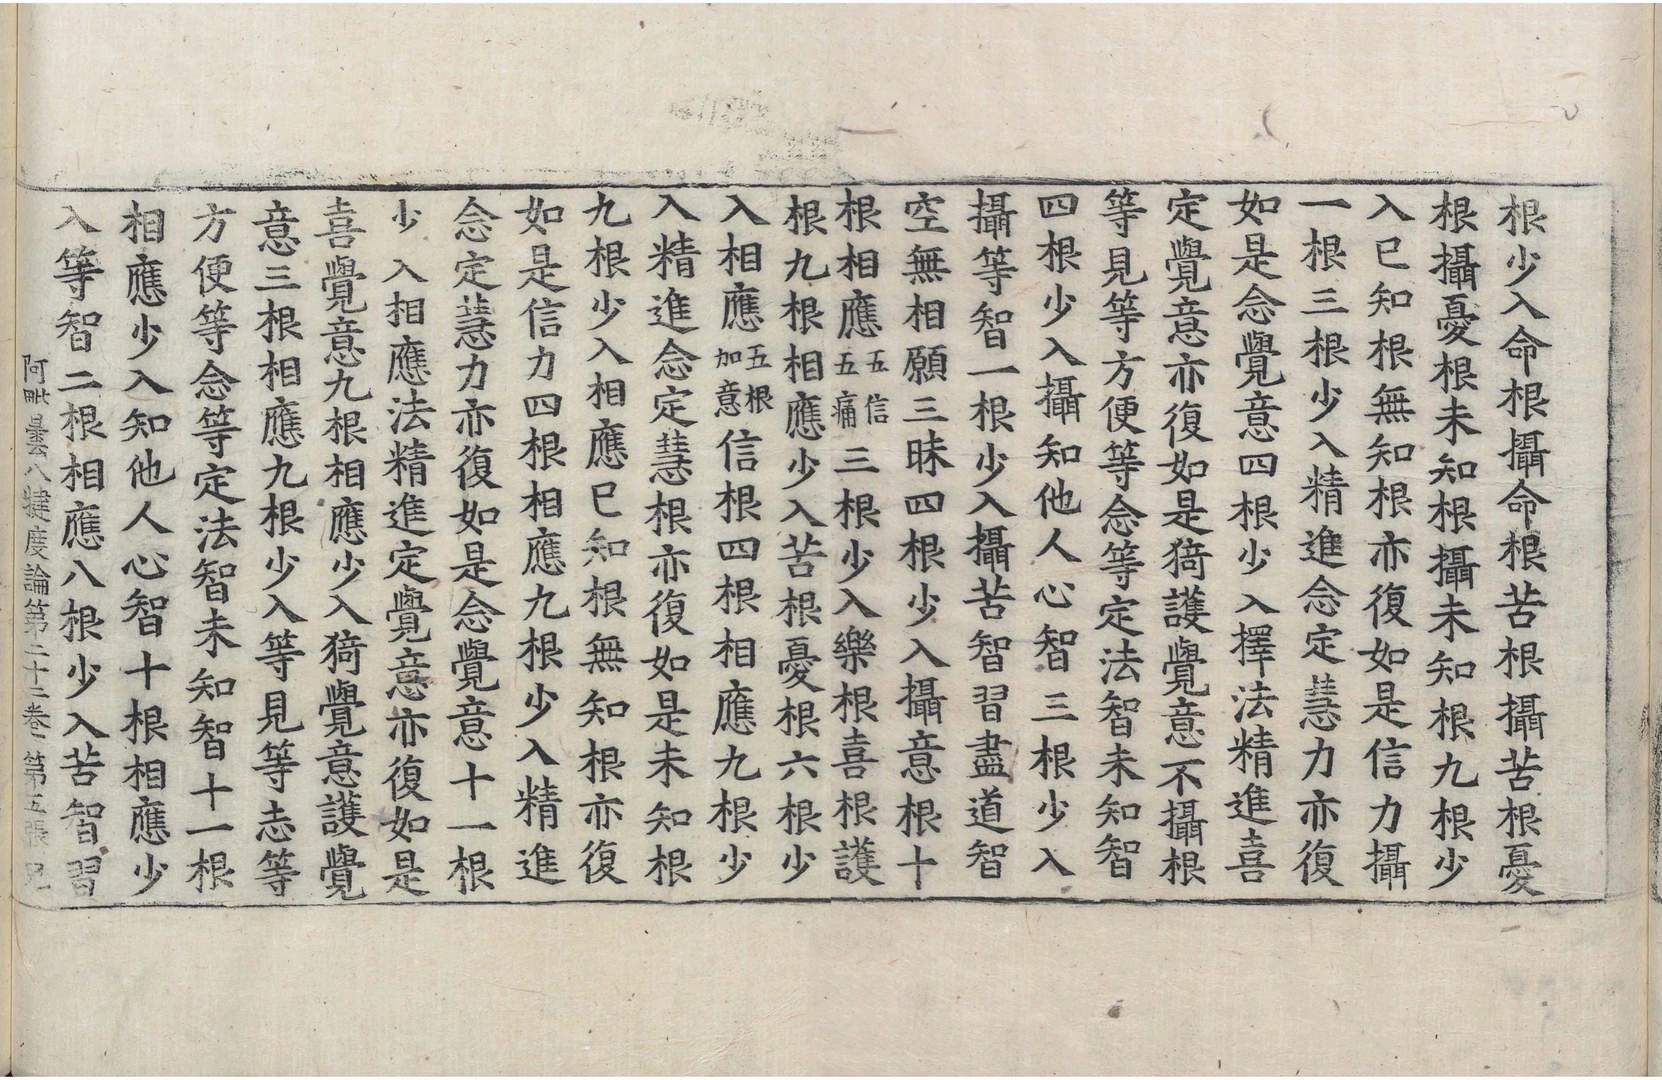 根少入命根攝命根苦根攝苦根憂
根攝憂根未知根攝未知根九根少
入已知根無知根亦復如是信力攝
一根三根少入精進念定慧力亦復
如是念覺意四根少入擇法精進喜
定覺意亦復如是猗護覺意不攝根
等見等方便等念等定法智未知智
四根少入攝知他人心智三根少入
攝等智一根少入攝苦智習盡道智
空無相願三昧四根少入攝意根十
根相應五信五痛三根少入樂根喜根護
根九根相應少入苦根憂根六根少
入相應五根加意信根四根相應九根少
入精進念定慧根亦復如是未知根
九根少入相應已知根無知根亦復
如是信力四根相應九根少入精進
念定慧力亦復如是念覺意十一根
少入相應法精進定覺意亦復如是
喜覺意九根相應少入猗覺意護覺
意三根相應九根少入等見等志等
方便等念等定法智未知智十一根
相應少入知他人心智十根相應少
入等智二根相應八根少入苦智習
阿毗曇八揵度論第二十二卷 第五張 兄